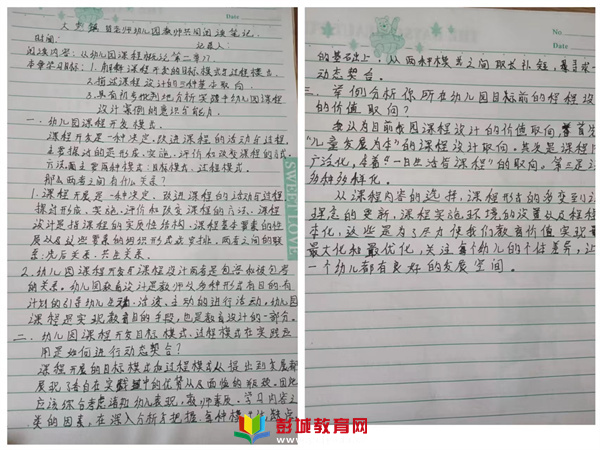 Date
大彭镇 幼儿园教师共同阅读笔记
时间: 记录人:
阅读内容: 《幼儿园课程概论 第二章》
本章学习目标: 1. 了解课程开发的目标模式与过程模式
2. 描述课程设计的三种基本取向
3. 具有初步批判地分析实践中幼儿园课程
设计案例的意识与能力
一. 幼儿园课程开发模式.
课程开发是一种决定、改进课程的活动与过程,
主要探讨的是形成、实施、评价和改变课程的方式、
方法而主要有两种模式: 目标模式、过程模式.
那么两者之间有什么关系?
1. 课程开展是一种决定、改进课程的活动与过程,
探讨形成、实施、评价和改变课程的方法、课程
设计是指课程的实质性结构、课程基本要素的性
质以及这些要素的组织形式或安排, 两者之间的联
系: 先后关系、共生关系
2. 幼儿园课程开发与课程设计两者是包含和被包含
的关系. 幼儿园教育设计是教师以多种形式有目的有
计划的引导幼儿生动、活泼、主动的进行活动, 幼儿园
课程是实现教育目的手段, 也是教育设计的一部分.
二. 幼儿园课程开发目标模式、过程模式在实践运
用是如何进行动态契合?
课程开展的目标模式和过程模式从提出到发展都
展现了各自在实践中的优势以及面临的瓶颈. 因此
应该综合考虑诸如幼儿表现, 教师素质、学习内容之
类的因素, 在深入分析与把握各种模式优缺点
No
Date
的基础上, 从两种模式之间取长补短, 寻求
动态契合.
三. 举例分析你所在幼儿园目前的课程设
的价值取向?
我认为目前我园课程设计的价值取向, 首先
"儿童发展为本"的课程设计取向. 其次是课程
广泛化, 本着"一日生活皆课程"的取向. 第三是
多种多样化.
从课程内容的选择, 课程形式的多变到
理念的更新, 课程实施环境的设置以及程
本化, 这些是为了尽力使我们教育价值实现
最大化和最优化, 关注每个幼儿的个体差异, 让
一个幼儿都有良好的发展空间.
SWEET LOVE
彭城教育网